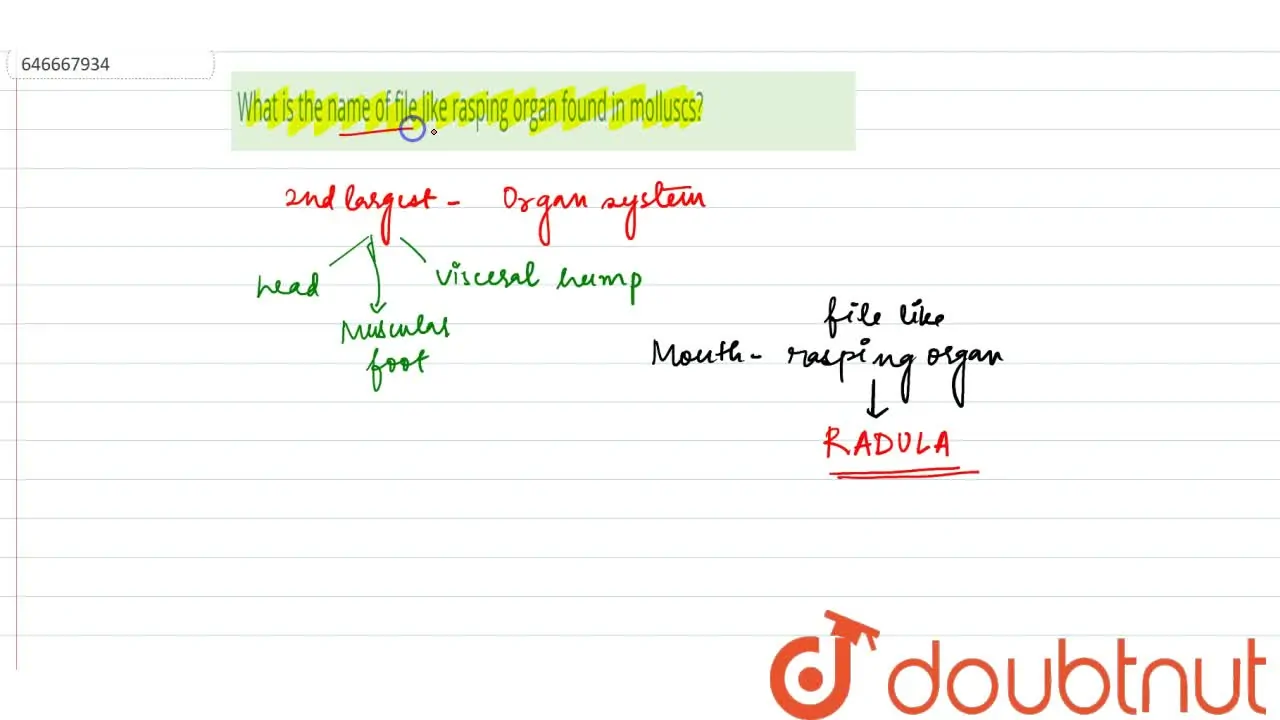 646667934
What is the name of file like rasping organ found in molluscs?
2nd largest - Organ system
head
visceral hump
Muscular
foot
file like
Mouth - rasping organ
RADULA
doubtnut